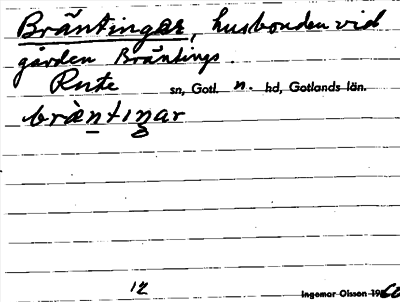 Bräntingar, husbonden vid
gården Bräntings.
Rute sn, Gotl. n. hd, Gotlands län.
bràntiŋar
12
Ingemar Olsson 1960